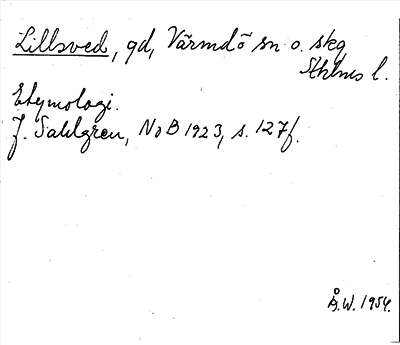 Lillsved, gd, Värmdö sn o. skg
Sthlms l.
Etymologi.
J. Sahlgren, NoB 1923, s. 127f.
Å.W. 1954.